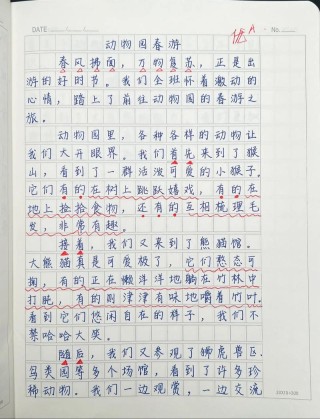 DATE
优A
No.
动物园春游
春风拂面,万物复苏,正是出
游的好时节。我们全班怀着激动的
心情,踏上了前往动物园的春游之
旅。
动物园里,各种各样的动物让
我们大开眼界。我们首先来到了猴
山,看到了一群活泼可爱的小猴子。
它们有的在树上跳跃嬉戏,有的在
地上捡拾食物,还有的互相梳理毛
发,非常有趣。
接着,我们又来到了熊猫馆。
大熊猫真是可爱极了,它们憨态可
掬,有的正在懒洋洋地躺在竹林中
打盹,有的则津津有味地嚼着竹叶。
看到它们悠闲自在的样子,我们不
禁哈哈大笑。
随后,我们又参观了狮虎兽区、
鸟类园等多个场馆,看到了许多珍
稀动物。我们一边观赏,一边交流